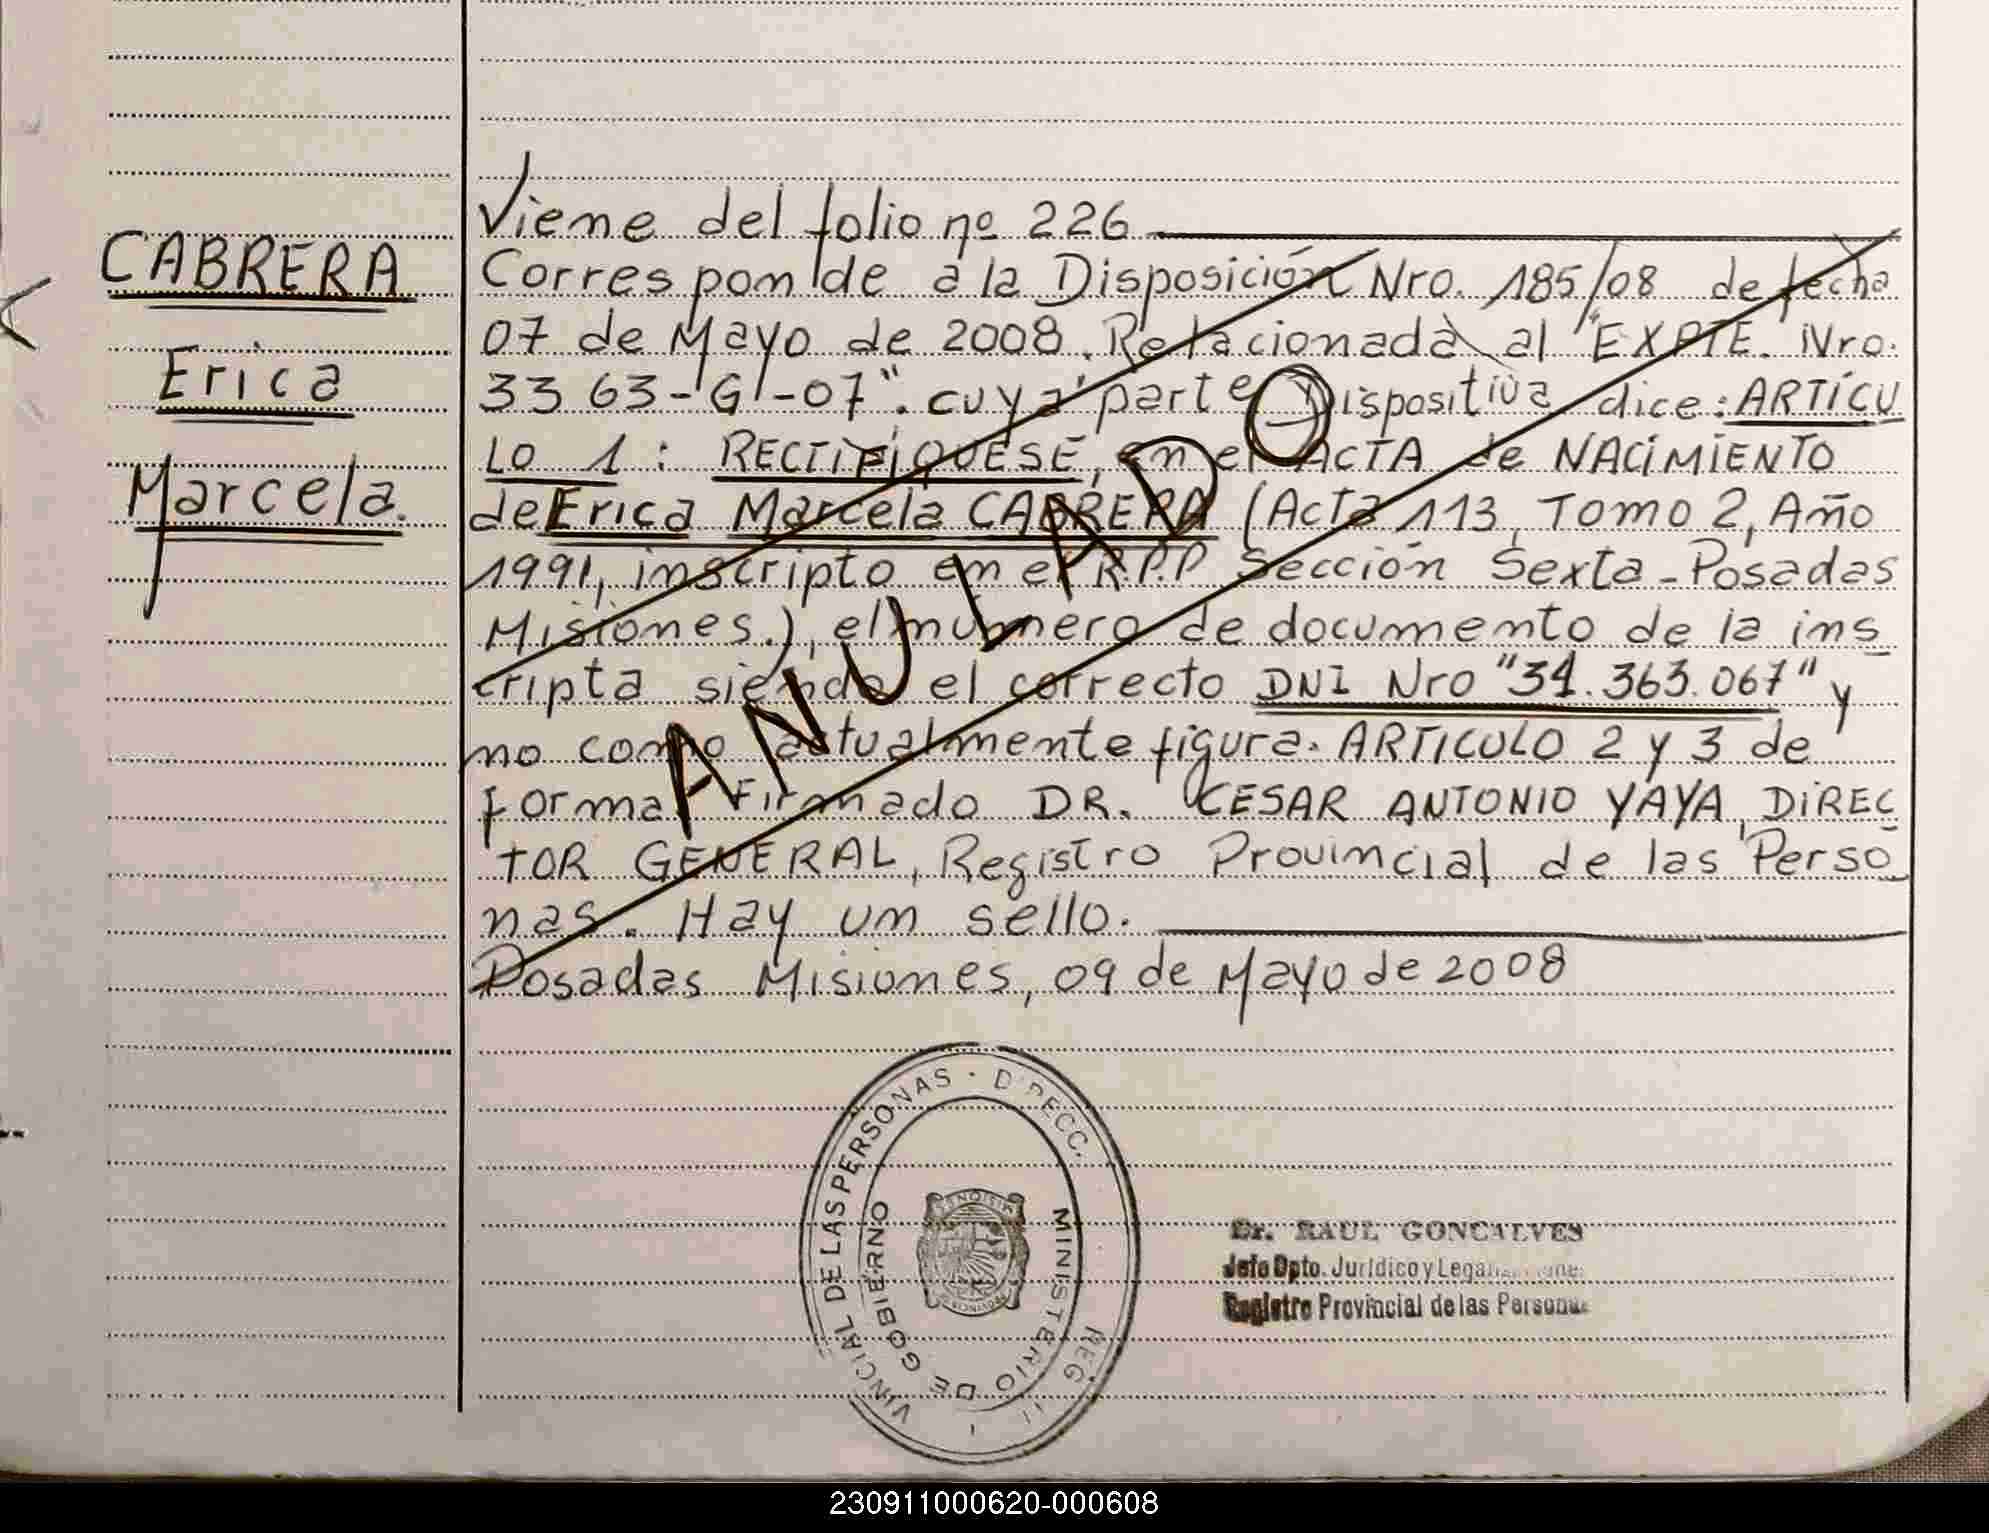 CABRERA
Erica
Marcela.
Viene del folio nº 226
Corresponde a la Disposición Nro. 185/08 de fecha
07 de Mayo de 2008. Relacionada al "EXPTE. Nro.
3363-G-07". cuya parte Dispositiva dice: ARTÍCU
LO 1: RECTIFIQUESE, en el ACTA de NACIMIENTO
de Erica Marcela CABRERA (Acta 113, Tomo 2, Año
1991, inscripto en el R.P.P Sección Sexta - Posadas
Misiones.), el número de documento de la ins
cripta siendo el correcto DNI Nro "34.363.067" y
no como actualmente figura. ARTICULO 2 y 3 de
forma Firmado DR. CESAR ANTONIO YAYA, DIREC
TOR GENERAL, Registro Provincial de las Perso
nas. Hay un sello.
Posadas Misiones, 09 de Mayo de 2008
ANULADO
VINCIAL DE LAS PERSONAS · DIRECC.
MINISTERIO DE GOBIERNO
MISIONES
Dr. RAUL GONCALVES
Jefe Dpto. Jurídico y
Registro Provincial de las Personas
230911000620-000608